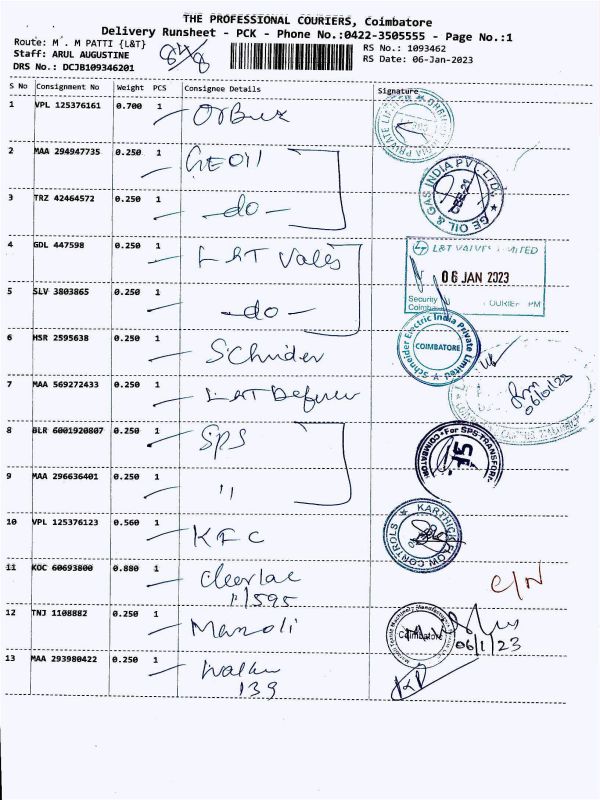 THE PROFESSIONAL COURIERS, Coimbatore
Delivery Runsheet - PCK - Phone No.:0422-3505555 - Page No.:1
Route: M . M PATTI {L&T}
Staff: ARUL AUGUSTINE
DRS No.: DCJB109346201
RS No.: 1093462
RS Date: 06-Jan-2023
S No Consignment No Weight PCS Consignee Details Signature
1 VPL 125376161 0.700 1
2 MAA 294947735 0.250 1 GEOIl
3 TRZ 42464572 0.250 1 -do-
GE OIL & GAS INDIA PVT. LTD.
4 GDL 447598 0.250 1 L&T Valves
L&T VALVES LIMITED
06 JAN 2023
Security
5 SLV 3803865 0.250 1 -do-
6 HSR 2595638 0.250 1
Schneider Electric India Private Limited
COIMBATORE
7 MAA 569272433 0.250 1
06/01/23
8 BLR 6001920807 0.250 1 SPS
For SPS TRANSFOR
15
9 MAA 296636401 0.250 1 "
10 VPL 125376123 0.560 1 KFC
KARTHICK FLOW CONTROLS
11 KOC 60693800 0.880 1
1595
C/N
12 TNJ 1108882 0.250 1
Coimbatore
06/1/23
13 MAA 293980422 0.250 1
139